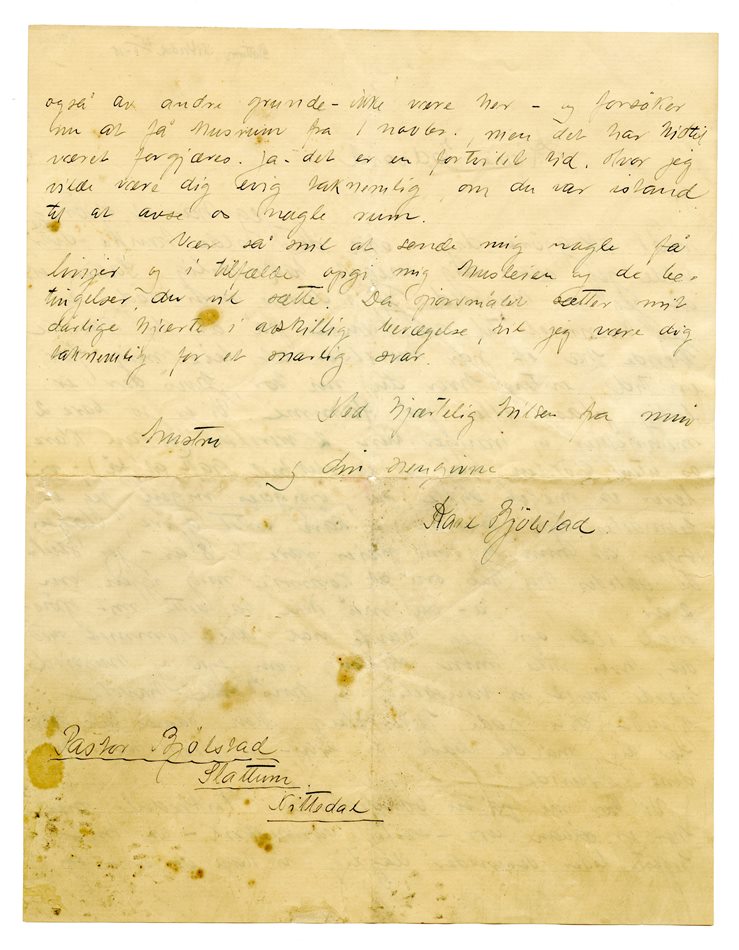 også av andre grunde - ikke være her - og forsöker
nu at få husrum fra 1 novbr., men det har hittil
været forgjæves. Ja - det er en fortvilet tid. Hvor jeg
vilde være dig evig taknemlig, om du var istand
til at avse os nogle rum.
Vær så snil at sende mig nogle få
linjer og i tilfælde opgi mig husleien og de be-
tingelser, du vil sætte. Da spörsmålet sætter mit
dårlige hjærte i adskillig bevægelse, vil jeg være dig
taknemlig for et snarlig svar.
Med hjærtelig hilsen fra min
hustru
og din hengivne
Karl Bjölstad.
Pastor Bjölstad
Slattum.
Nittedal